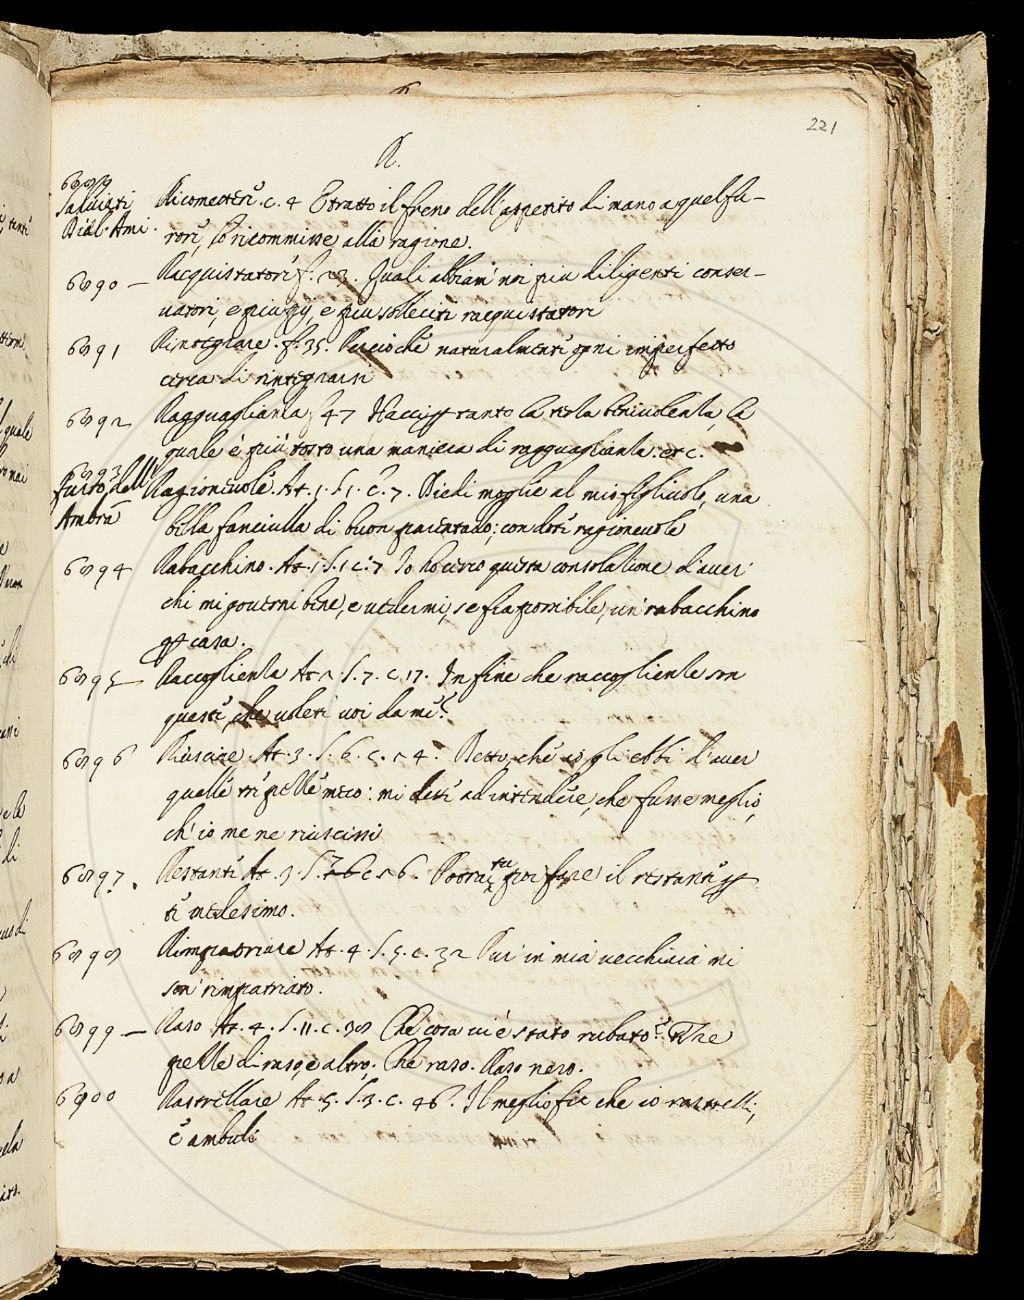 221
R.
6889
Salviati
Dial. Ami.
Ricomettere. c. 4 E tratto il freno dell'appetito di mano a quel fu-
rore, lo ricommisse alla ragione.
6890 — Racquistatori f. 23. Quali abbiam noi piu diligenti conser-
vatori, e piu solleciti racquistatori
6891 Rintegrare. f. 35. Percioche naturalmente ogni imperfetto
cerca di rintegrarsi
6892 Ragguaglianza f 47 tanto la vera benivolenza, la
quale è piu tosto una maniera di ragguaglianza. etc.
6893
Furto dell'
Ambra
Ragionevole. At. 1. S. 1. C. 7. Diedi moglie al mio figliuolo, una
bella fanciulla di buon parentado; con dote ragionevole
6894 Rabacchino. At. 1. S. 1 c. 7 Io ho cerco questa consolatione d'aver
chi mi governi bene, e vedermi, se fia possibile, un rabacchino
per casa.
6895 — Raccoglienza At 2. S. 7. C 17. In fine che raccoglienze son
queste, che volete voi da me?
6896 Riuscire. At. 3. S. 6. C. 24. Detto, che io gli ebbi d'aver
quelle tre pelle meco: mi dette ad intendere, che fusse meglio,
ch'io me ne riuscissi
6897. Restante At. 3. S. 7 c 26. Potrai tu poi fare il restante per
te medesimo.
6898 Rimpatriare At. 4. S. 5. c. 32 Pur in mia vecchiaia mi
son rimpatriato.
6899 — Raso At. 4. S. 11. C. 38 Che cosa vi è stato rubato? Tre
pelle di raso, e altro. Che raso. Raso nero.
6900 Rastrellare At. 5. S. 3. C. 46. Il meglio fie che io rastrelli,
e ambuli